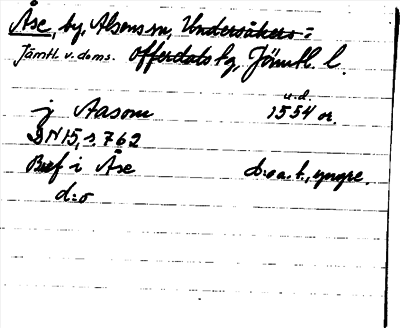 Åse, by, Alsens sn, Undersåkers =
Jämtl. v. doms. Offerdals tg, Jämtl. l.
u.d.
j Aasom 1554 or.
DN 15, s. 762
Bref i Åse d:o a. t., yngre.
d:o